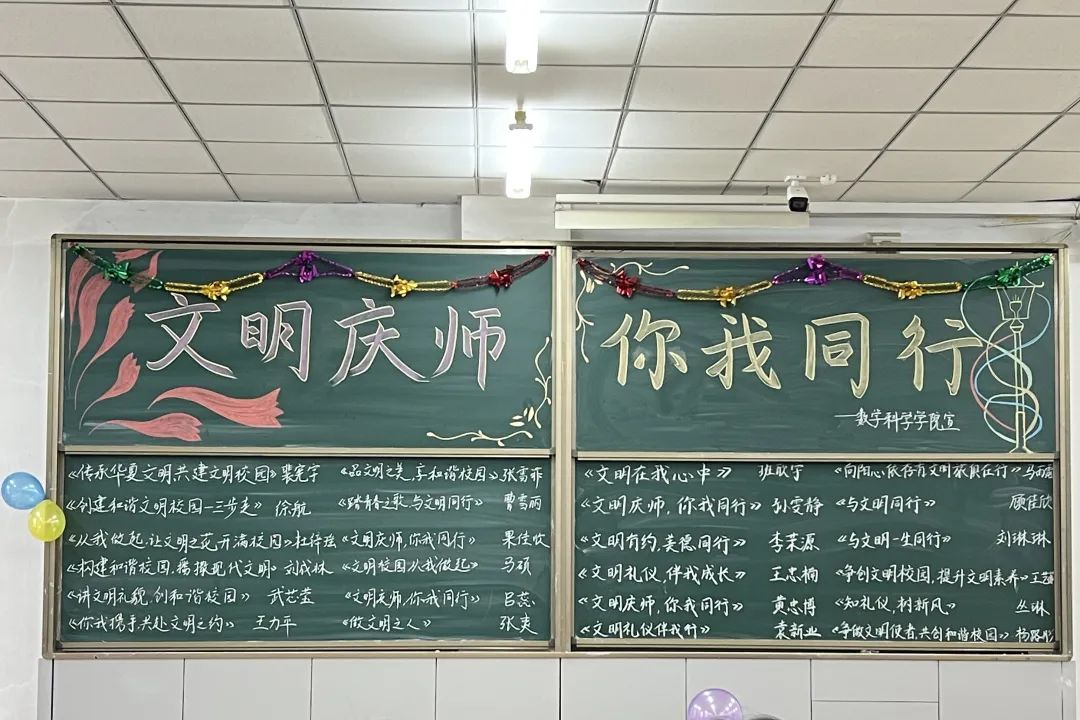 文明庆师
你我同行
—数学科学学院宣
《传承华夏文明,共建文明校园》裴宪宇
《品文明之美,享和谐校园》张雪菲
《创建和谐文明校园—三步走》 徐航
《踏青春之歌,与文明同行》 曹雪丽
《从我做起,让文明之花开满校园》
《文明庆师,你我同行》 果佳欣
《构建和谐校园,播撒现代文明》 刘成林
《文明校园,从我做起》 马硕
《讲文明礼貌,创和谐校园》 武芷莹
《文明庆师,你我同行》 吕蕊
《你我携手共赴文明之约》 王力平
《做文明之人》 张爽
《文明在我心中》 班欣宇
《向阳心依存有文明 在行》
《文明庆师,你我同行》 孙雯静
《与文明同行》 顾佳欣
《文明有约,美德同行》 李荣源
《与文明一生同行》 刘琳琳
《文明礼仪,伴我成长》 王忠楠
《争创文明校园,提升文明素养》
《文明庆师,你我同行》 黄忠博
《知礼仪,树新风》 丛琳
《文明礼仪伴我行》 袁新业
《争做文明使者,共创和谐校园》 杨路彤